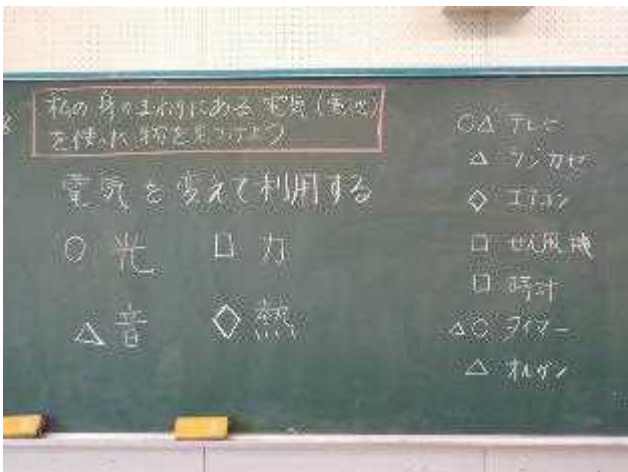 私の身のまわりにある電気(電池)
を使った物を見つけよう
電気を変えて利用する
○ 光 □ 力
△ 音 ◇ 熱
○△ テレビ
△ ラジカセ
◇ エアコン
□ せん風機
□ 時計
△○ タイマー
△ オルガン